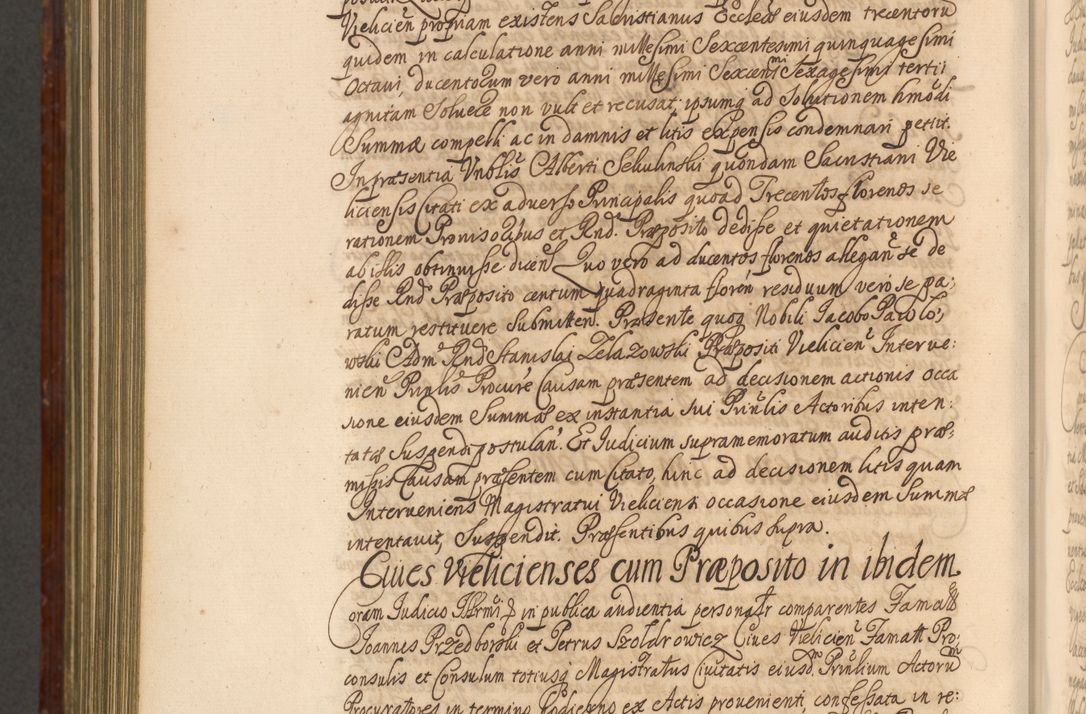 Vieliciēn propriam existens Sacristianus Ecclesiæ eiusdem trecentorū
quidem in calculatione anni millesimi Sexcentesimi quinquagesimi
Octavi, ducentorum vero anni millesimi Sexcentsmi Sexagesimi tertii
agnitam Soluere non vult et recusat, ipsumq ad Solutionem hmōdi
Summæ compelli ac in damnis et litis expensis condemnari petiit.
In præsentia Vnblis Alberti Sekulinski quondam Sacristiani Vie
liciensis Citati ex adverso Principalis quoad Trecentos florenos se
rationem Provisoribus et Rnd. Præposito dedisse et quietationem
ab illis obtinuisse dicēn. Quo vero ad ducentos florenos allegan̄t se de
disse Rnd Præposito centum quadraginta florēn residuum vero se pa:
ratum restituere Submitten. Præsente quoq Nobili Iacobo Pacolo:
wski Adm Rnd Stanislai Zelazowski Præpositi Vieliciēn Interve:
nien Prinlis Procure Causam præsentem ad decisionem actionis occa
sione eiusdem Summæ ex instantia sui Prinlis Actoribus inten:
tatæ Suspendi postulan. Et Iudicium supramemoratum auditis præ:
missis Causam præsentem cum Citato, hinc ad decisionem litis quam
Interveniens Magistratui Vieliciens occasione eiusdem Summæ
intentavit, Suspendit. Præsentibus quibus supra.
Ciues Vielicienses cum Præposito in ibidem
Coram Iudicio in publica audientia personalr comparentes Famati
Ioannes Przedborski et Petrus Szoldrowicz Ciues Vieliciēn Famati Pro:
consulis et Consulum totiusq Magistratus Ciuitatis eiusdm Prinlium Actorū
Procuratores in termino hodierno ex Actis provenienti, confessata in re: